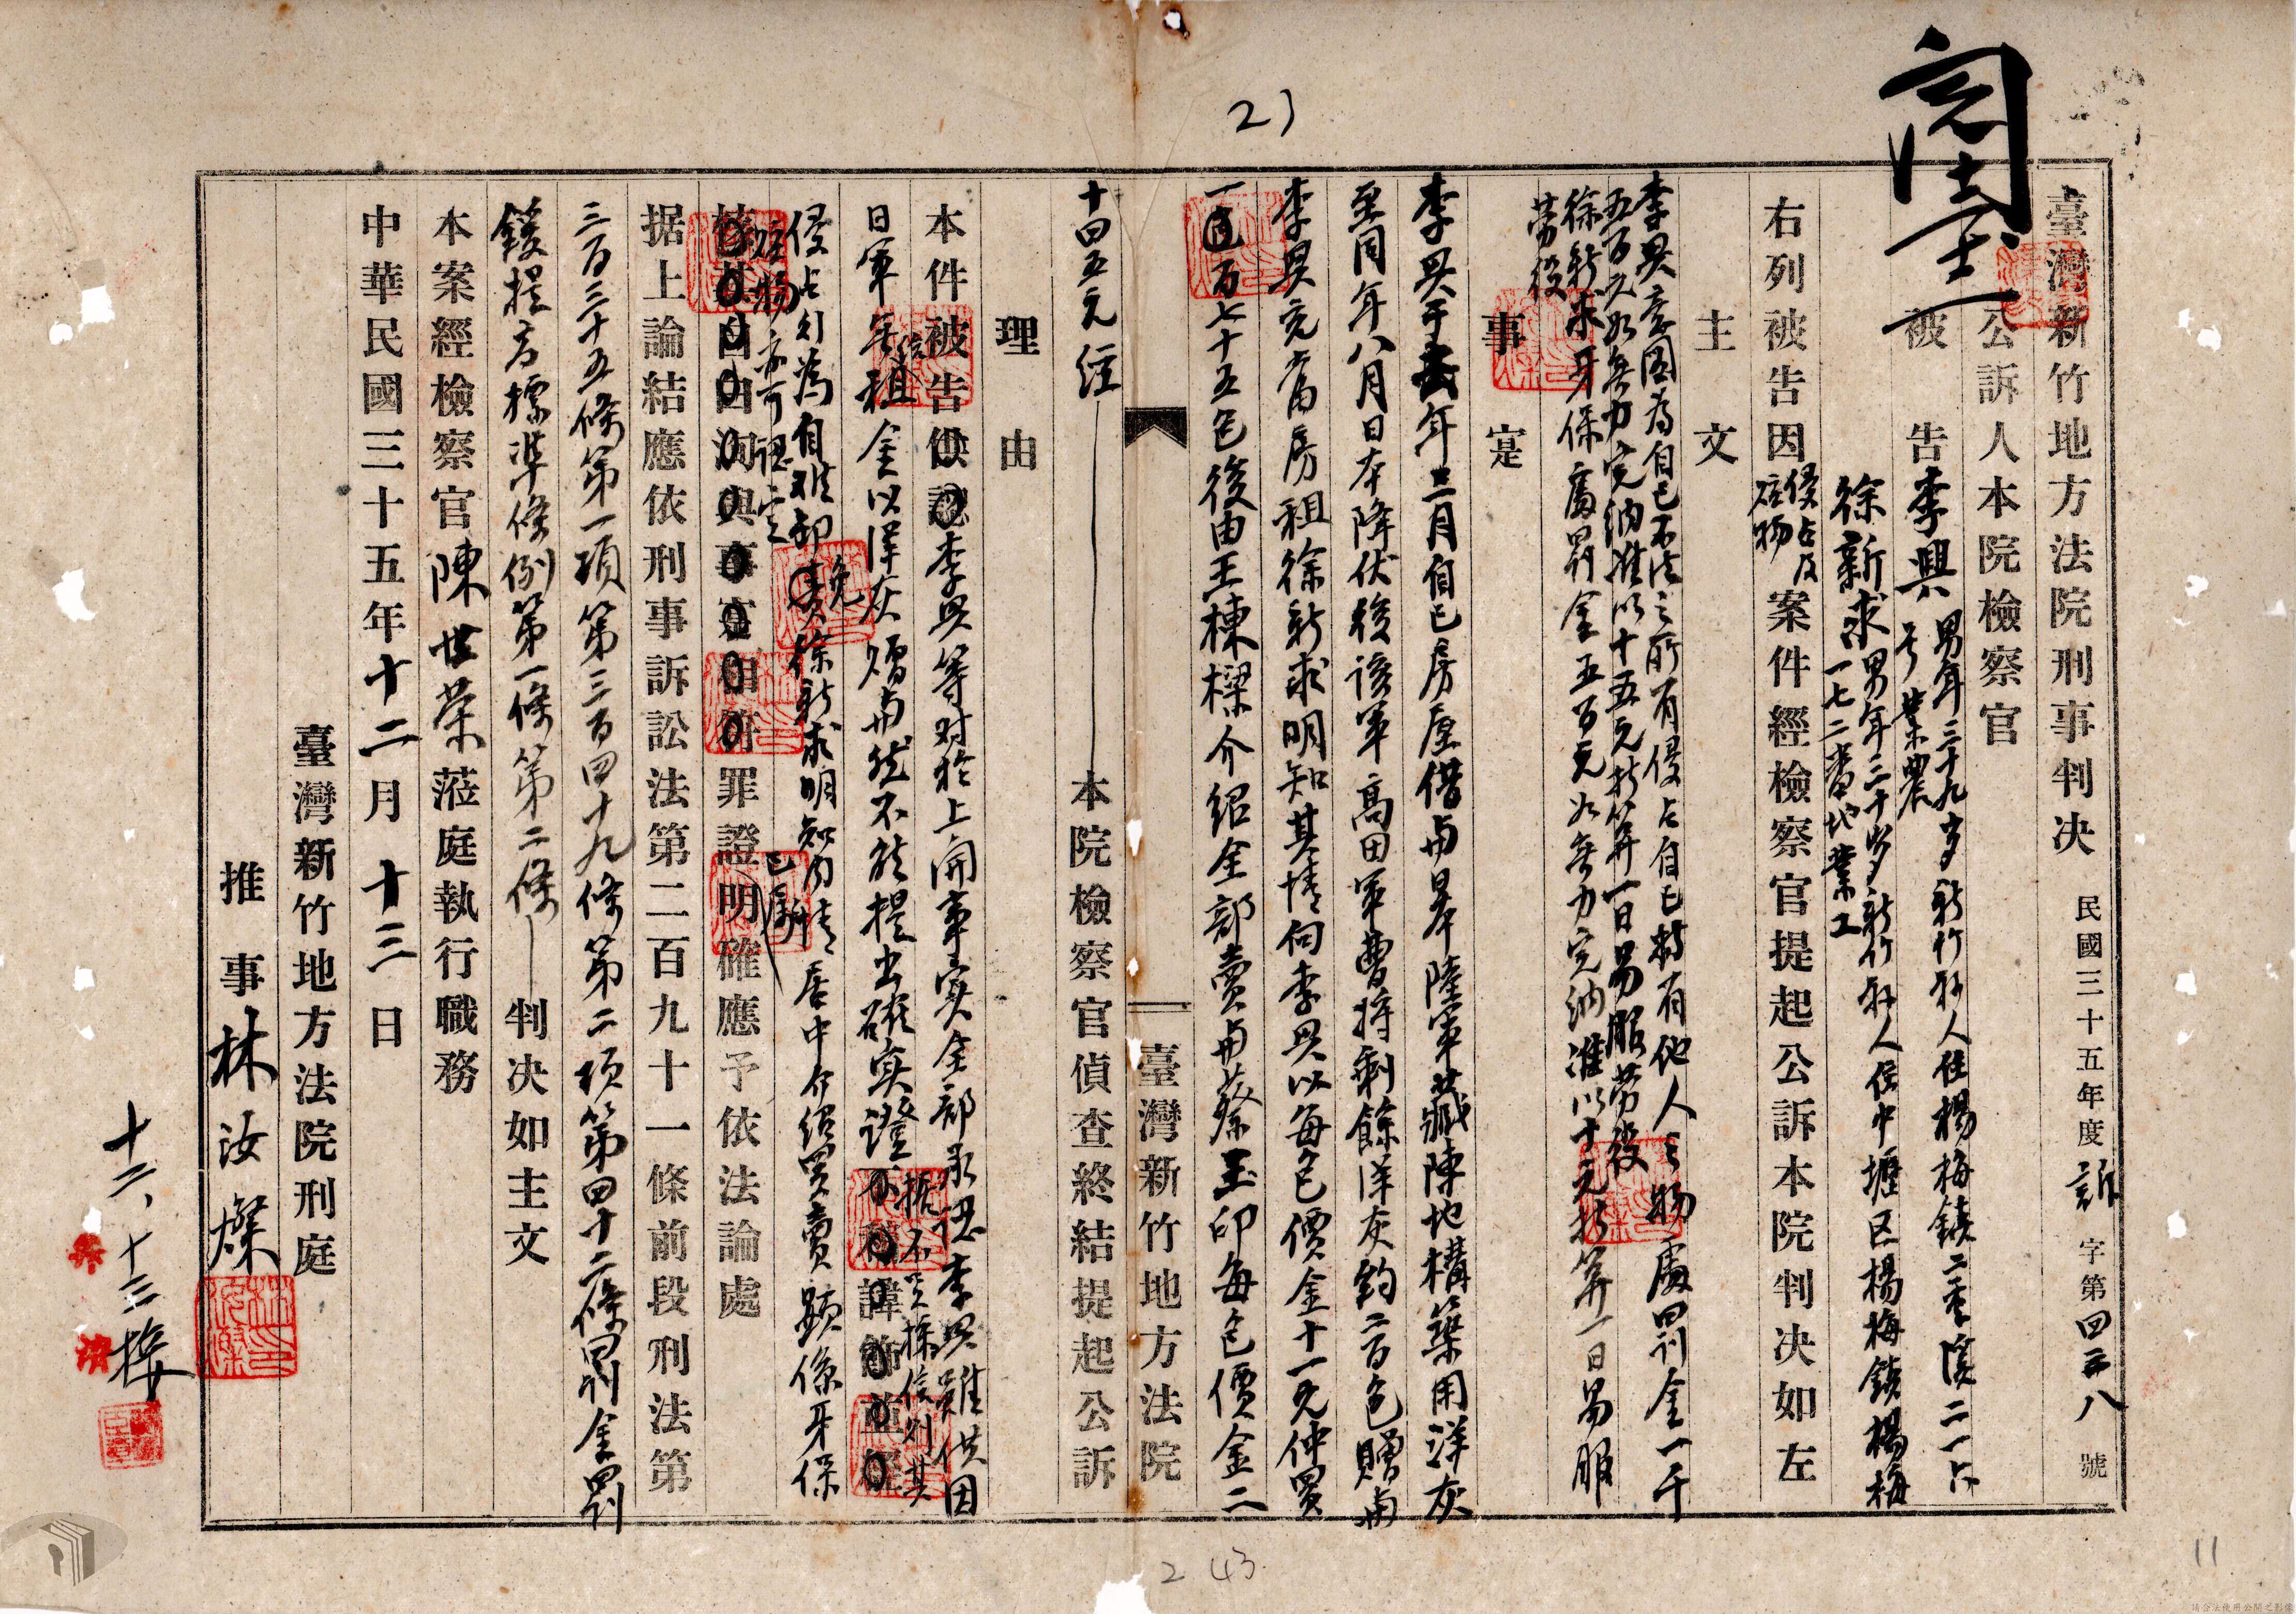 23
臺灣新竹地方法院刑事判決 民國三十五年度訴字第四三八號
公訴人本院檢察官
被告李興 男年三十九歲新竹縣人住楊梅鎮二重溪二一六
号業農
徐新求 男年三十歲新竹縣人住中壢区楊梅鎮楊梅
一七二番地業工
右列被告因侵占及贓物案件經檢察官提起公訴本院判決如左
主文
李興意圖為自己不法之所有侵占自己持有他人之物處罰金一千
五百元如無力完納准以十五元折算一日易服劳役
徐新求牙保處罰金五百元如無力完納准以十元折算一日易服
劳役
事實
李興于去年三月自己房屋借与日本陸軍藏陳地構築用洋灰
至同年八月日本降伏後該軍高田軍曹將剩餘洋灰約二百包贈与
李興充當房租徐新求明知其情向李興以每包價金十一元仲買
一百七十五包後由王棟樑介紹全部賣与蔡玉印每包價金二
十四五元經本院檢察官偵查終結提起公訴
臺灣新竹地方法院
理由
本件被告李興等对於上開事實全部承認李興雖供因
日軍無租金以洋灰贈与然不能提出確實證據不足採信則其
侵占行為自难卸免徐新求明知內情居中介紹買賣顯係牙保
贓物亦可認定已屬
罪證明確應予依法論處
据上論結應依刑事訴訟法第二百九十一條前段刑法第
三百三十五條第一項第三百四十九條第二項第四十二條罰金罰
鍰提高標準條例第一條第二條判決如主文
本案經檢察官陳世荣蒞庭執行職務
中華民國三十五年十二月十三日
臺灣新竹地方法院刑庭
推事林汝燦
十二、十三接
2 43
11